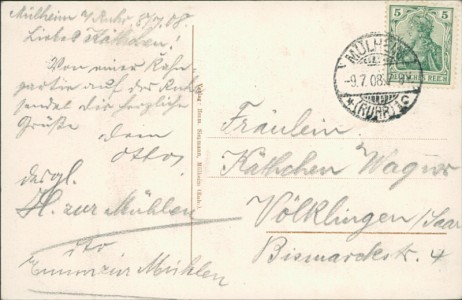 Mülheim a/Ruhr, 8/7.08.
Liebes Käthchen!
Von einer Kahn
partie auf der Ruhr
sendet dir herzliche
Grüße
dein
Otto
desgl.
H. zur Mühlen
dto
Emma zur Mühlen
Verlag: Herm. Neumann, Mülheim (Ruhr).
5 5
DEUTSCHES REICH
MÜLHEIM
-9.7.08.
*(RUHR)1c
Fräulein
Käthchen Wagner
Völklingen/Saar
Bismarckstr. 4